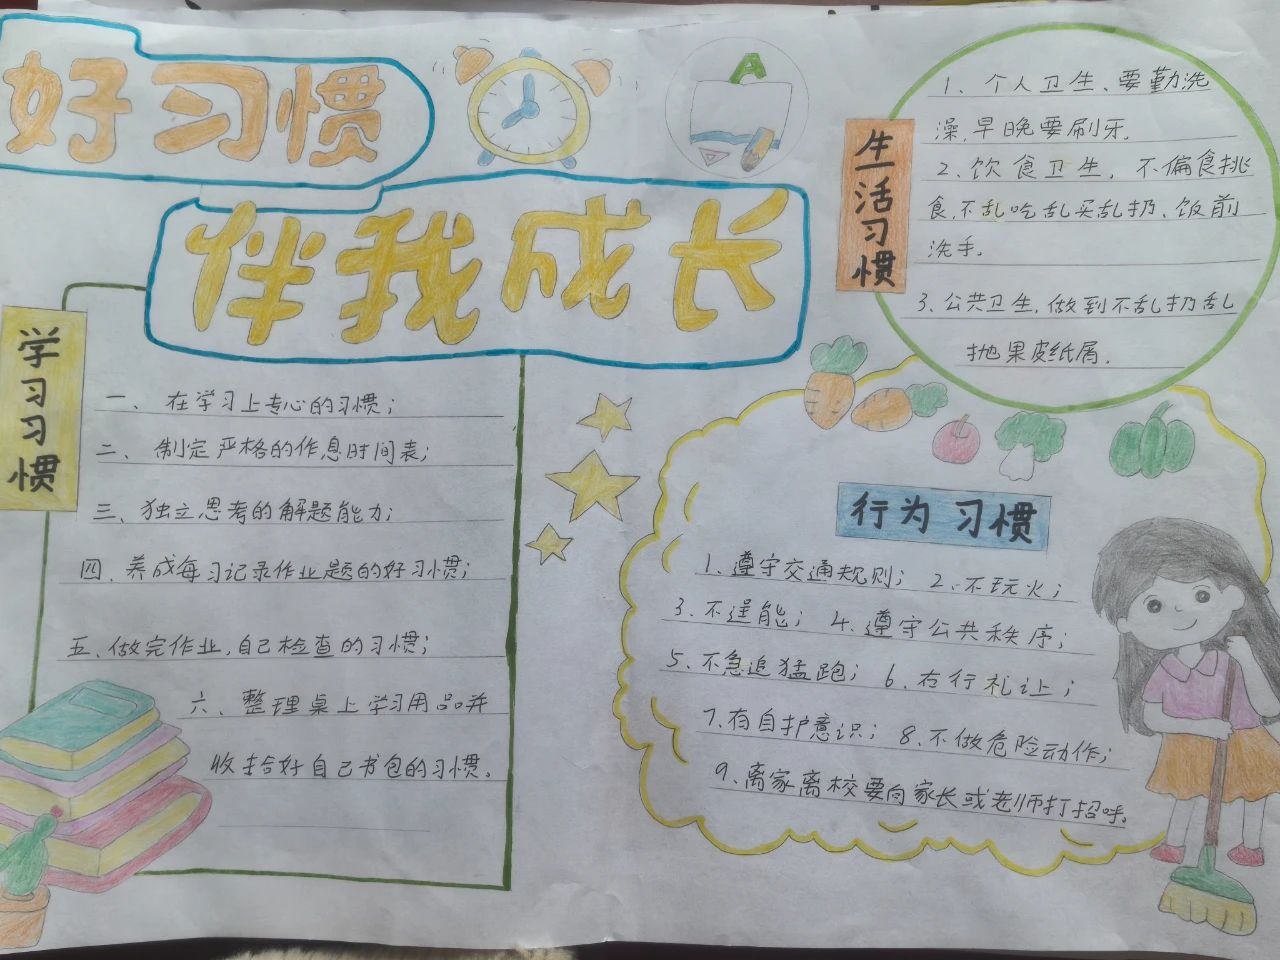 好习惯
伴我成长
A
学习习惯
一、在学习上专心的习惯;
二、制定严格的作息时间表;
三、独立思考的解题能力;
四、养成每习记录作业题的好习惯;
五、做完作业,自己检查的习惯;
六、整理桌上学习用品并
收拾好自己书包的习惯。
生活习惯
1、个人卫生、要勤洗
澡,早晚要刷牙.
2、饮食卫生,不偏食挑
食,不乱吃乱买乱扔、饭前
洗手。
3、公共卫生,做到不乱扔乱
抛果皮纸屑.
行为习惯
1、遵守交通规则; 2、不玩火;
3、不逞能; 4、遵守公共秩序;
5、不急追猛跑; 6、右行礼让;
7、有自护意识; 8、不做危险动作;
9、离家离校要向家长或老师打招呼。